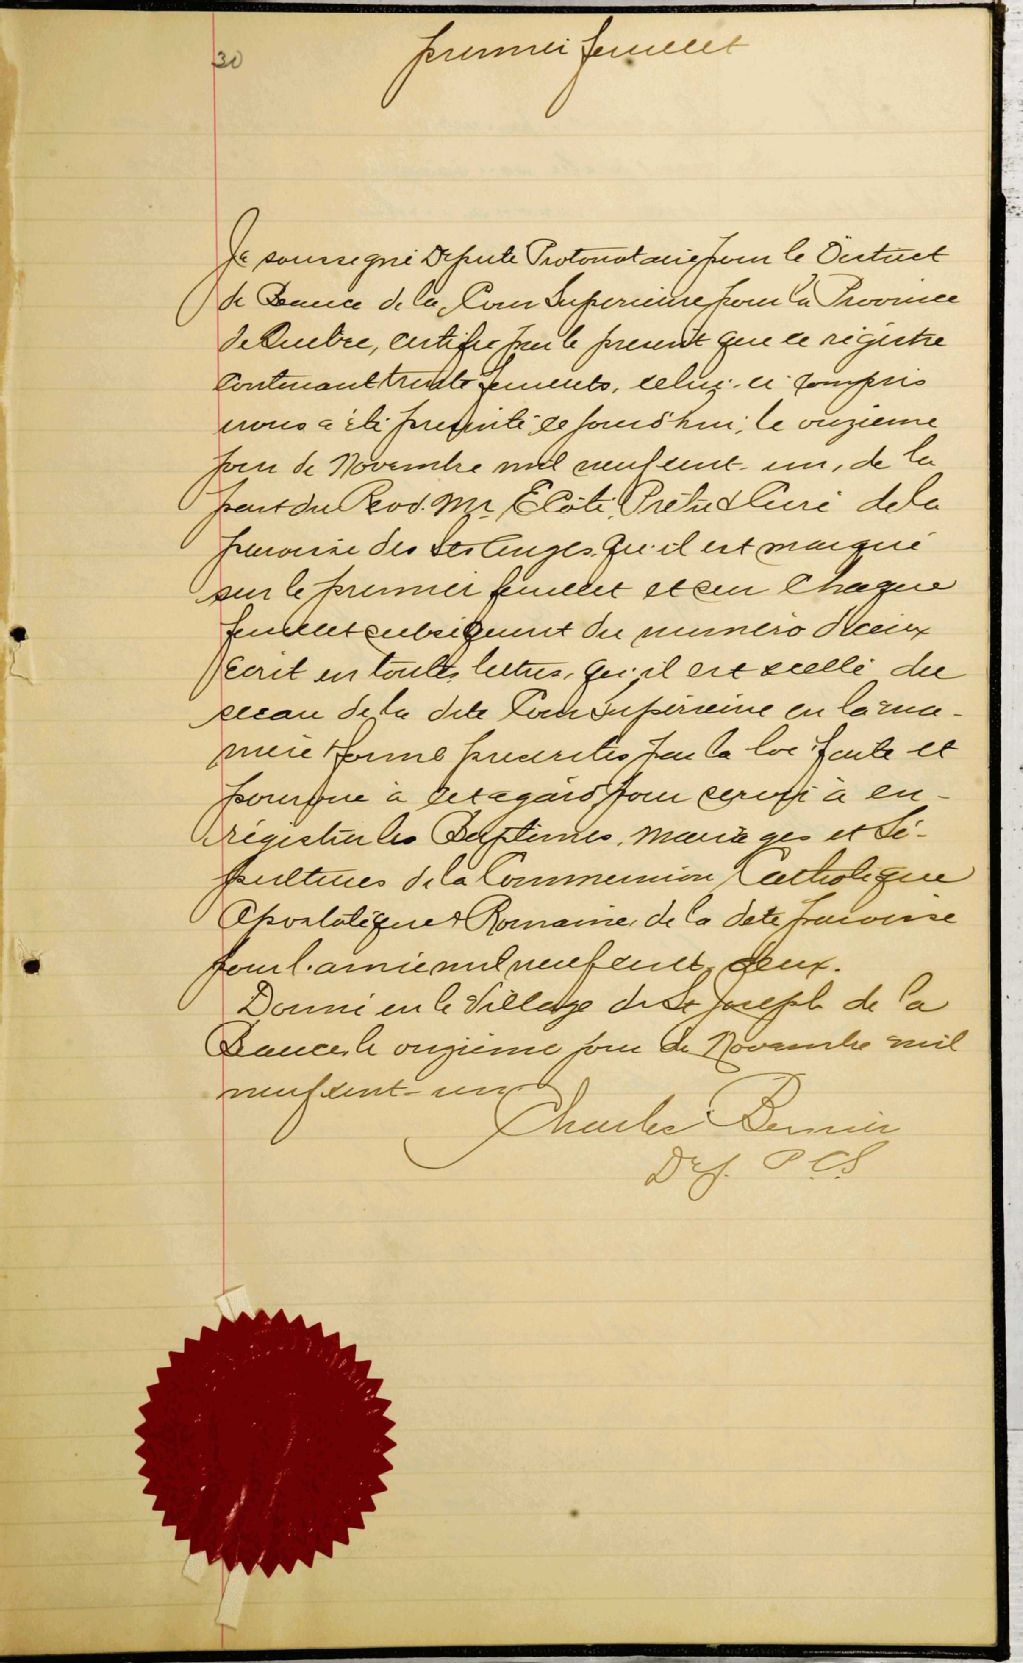 30
premier feuillet
Je soussigné Député Protonotaire pour le District
de Beauce de la Cour Supérieure pour la Province
de Quebec, certifie par le present que ce régistre
Contenant trente feuillets, celui-ci compris
nous a été présenté ce jourd'hui, le onzieme
jour de Novembre mil neuf cent-un, de la
part du Revd. Mr. E Côté, Prêtre & Curé de la
paroisse des Sts Anges. Qu'il est marqué
sur le premier feuillet et sur Chaque
feuillet subséquent du numéro d'iceux
écrit en toutes lettres, qu'il est scellé du
sceau de la dite Cour Supérieure en la ma-
nière & forme prescrites par la loi faite et
pourvue à cet égard pour servir à en-
régistrer les Baptêmes, mariages et Sé-
pultures de la Communion Catholique
Apostolique & Romaine, de la dite paroisse
pour l'année mil neuf cent deux.
Donné en le Village de St Joseph de la
Beauce le onzieme jour de Novembre mil
neuf cent-un
Charles Bernier
Dép. P. C. S